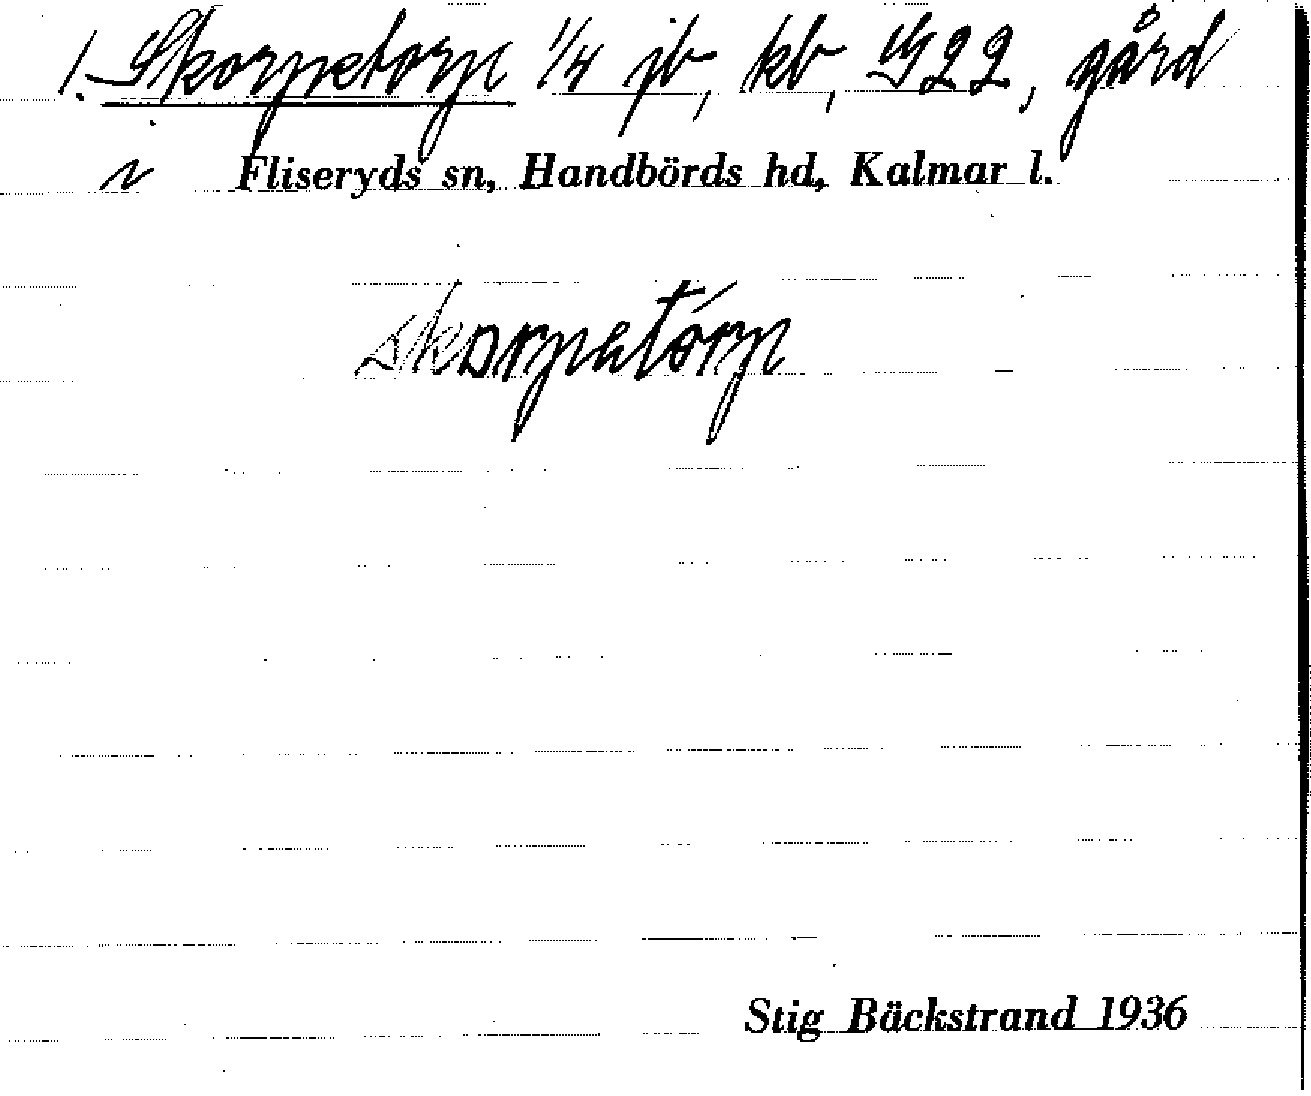 1. Skorpetorp 1/4 jb, kb, G22, gård
Fliseryds sn, Handbörds hd, Kalmar l.
skorpatórp
Stig Bäckstrand 1936